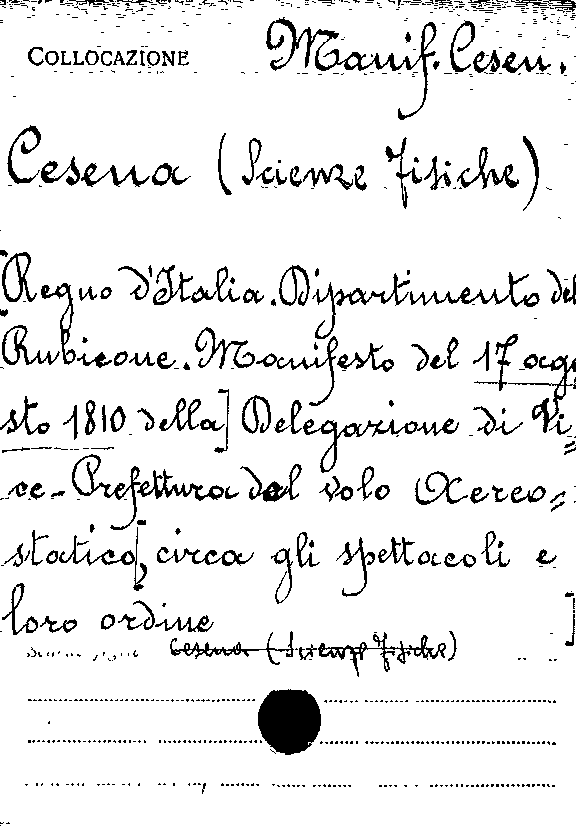 COLLOCAZIONE Manif. Cesen.
Cesena (Scienze Fisiche)
[Regno d'Italia. Dipartimento del
Rubicone. Manifesto del 17 ago
sto 1810 della] Delegazione di Vi=
ce-Prefettura del volo Aereo=
statico[, circa gli spettacoli e
loro ordine ]
Cesena (Scienze Fisiche)